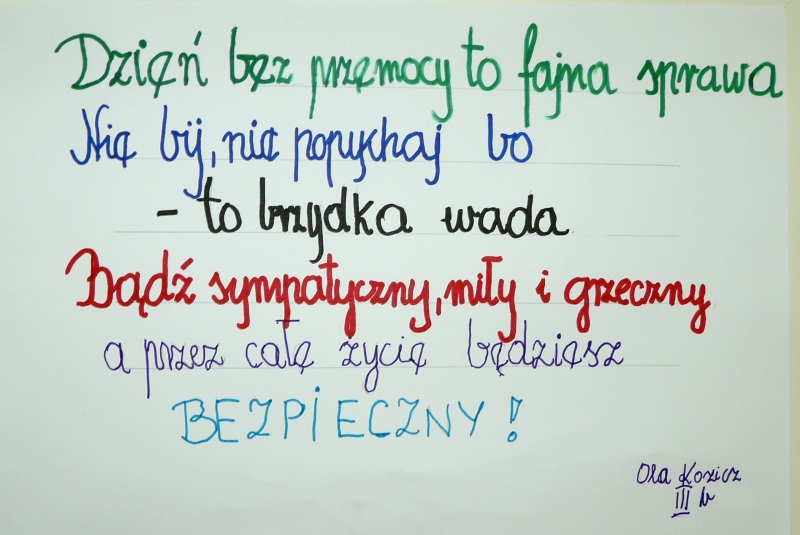 Dzień bez przemocy to fajna sprawa
Nie bij, nie popychaj bo
- to brzydka wada
Bądź sympatyczny, miły i grzeczny
a przez całe życie będziesz
BEZPIECZNY!
Ola Kozicz
III b